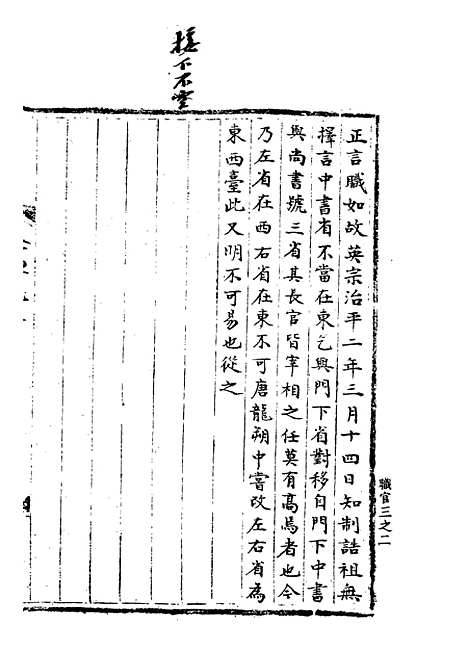 接下不空
職官三之二
正言職如故英宗治平二年三月十四日知制誥祖無
擇言中書省不當在東乞與門下省對移自門下中書
與尚書號三省其長官皆宰相之任莫有高焉者也今
乃左省在西右省在東不可唐龍朔中嘗改左右省為
東西臺此又明不可易也從之